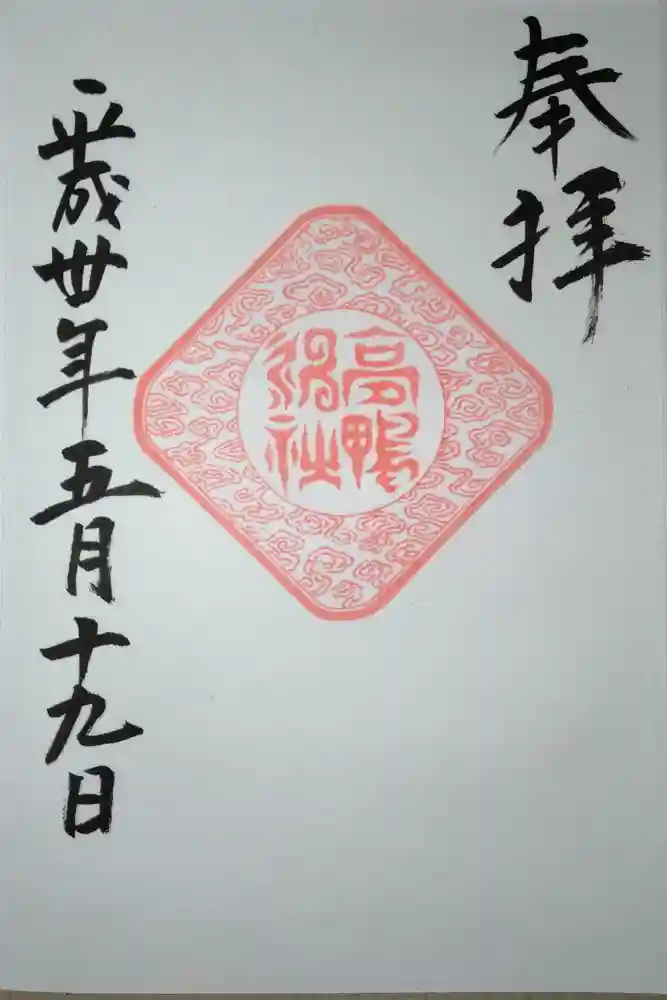 奉拝
高鴨
神社
平成卅年五月十九日